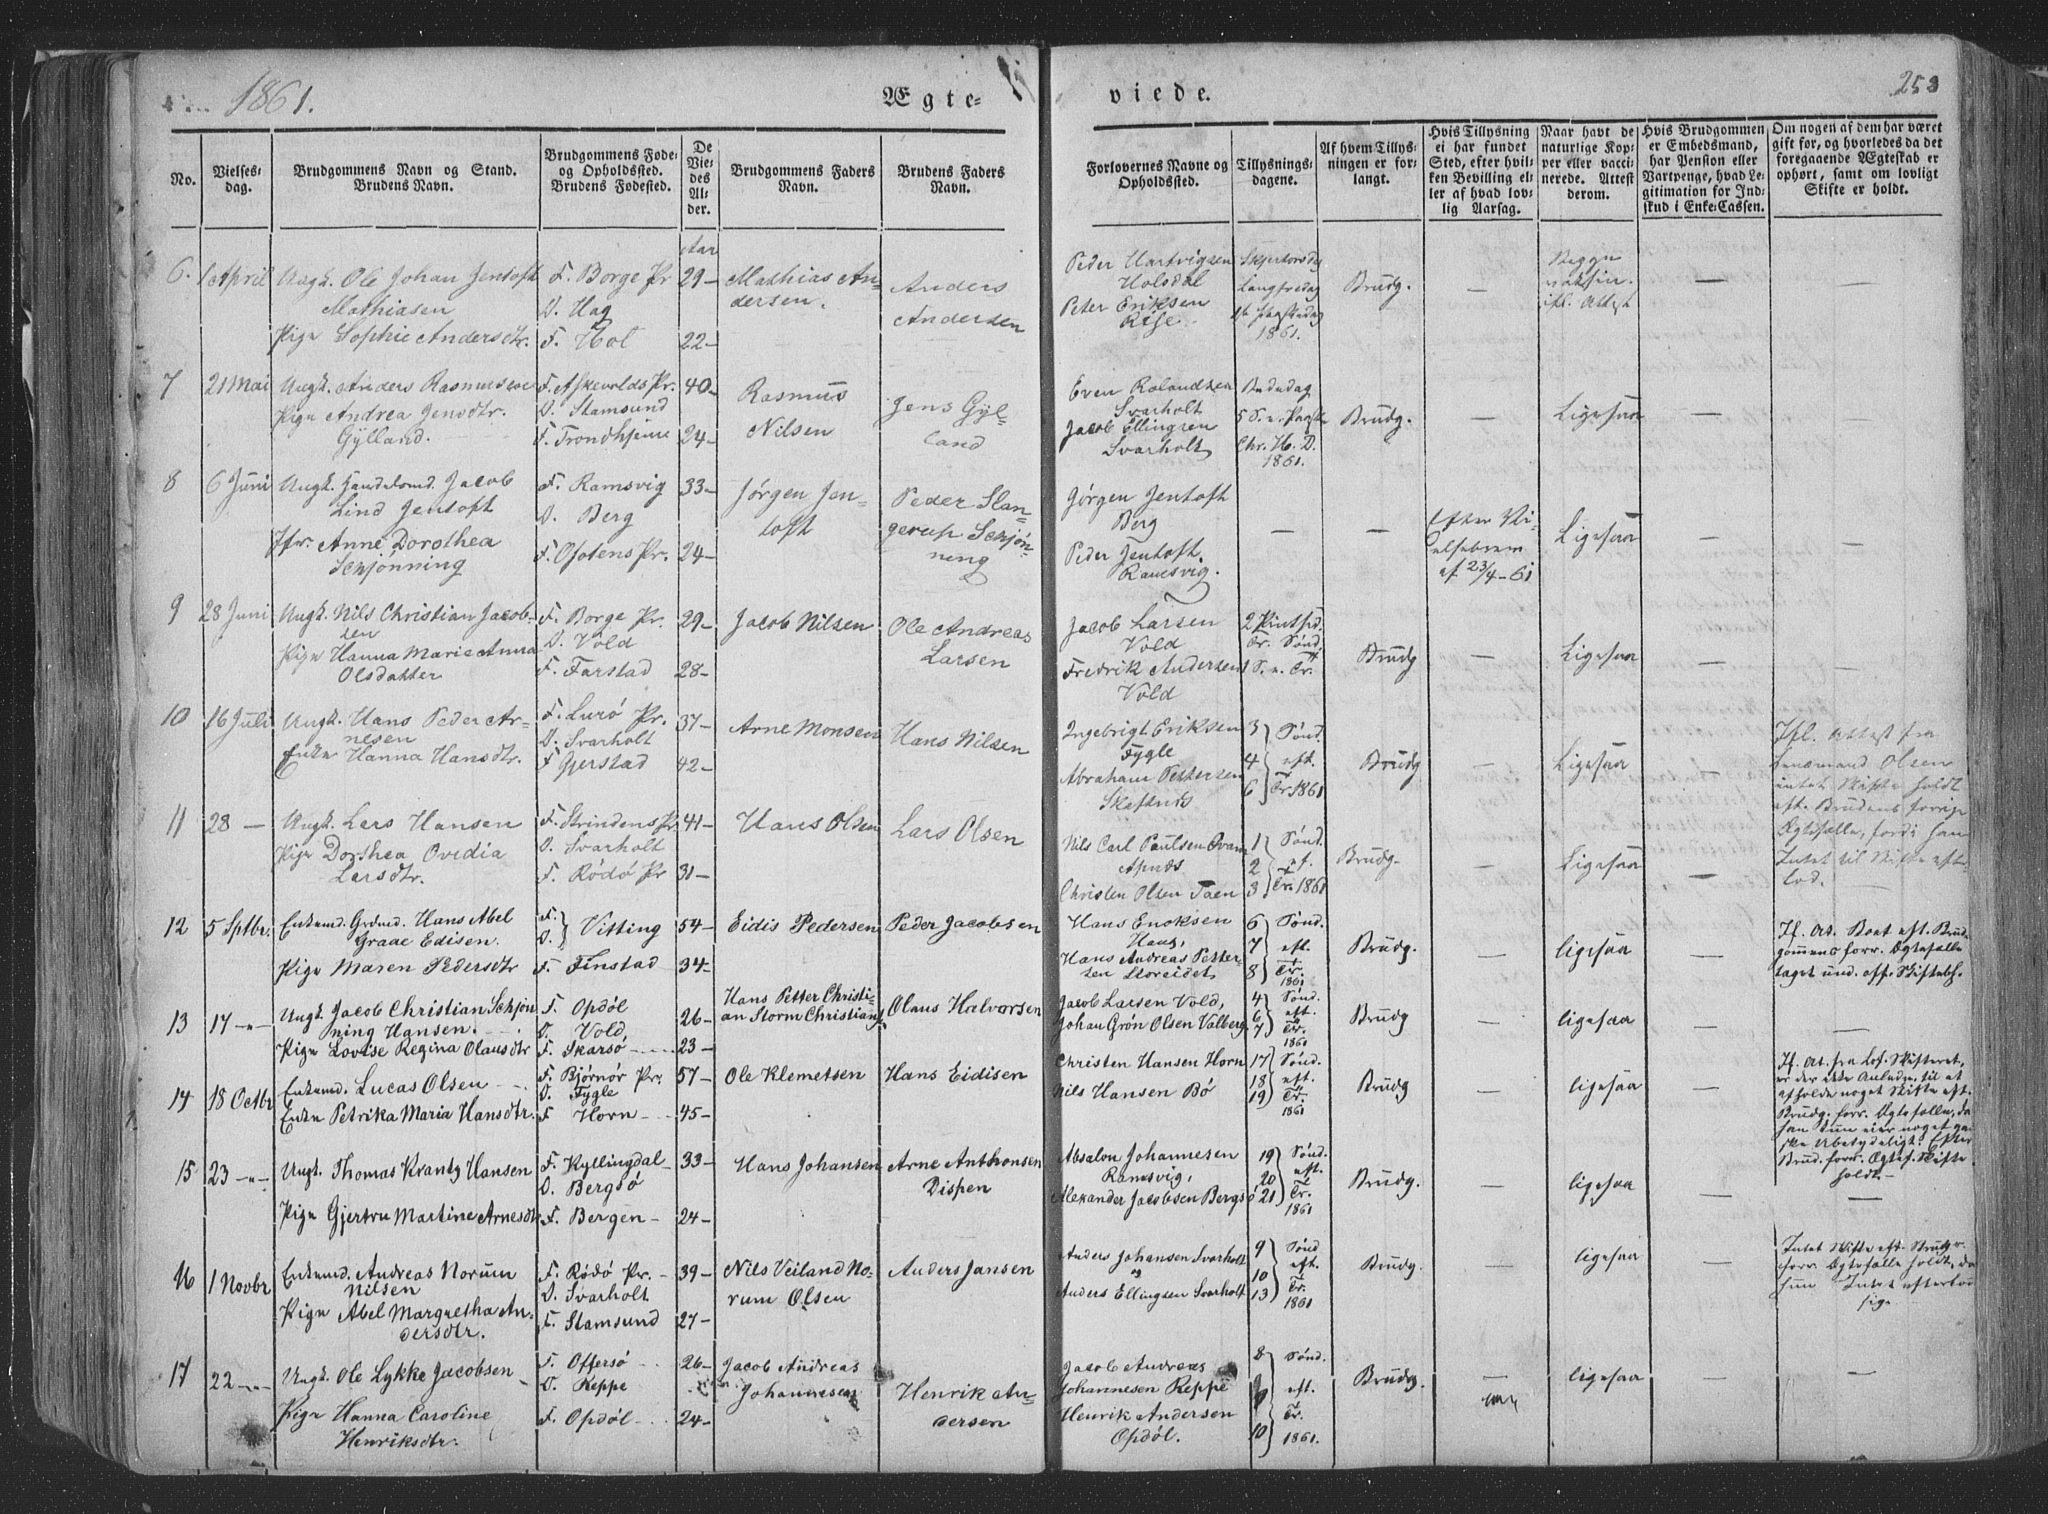 1861.
Ægte-
viede.
253
No.
Vielses-
dag.
Brudgommens Navn og Stand.
Brudens Navn.
Brudgommens Føde-
og Opholdssted.
Brudens Fødested.
De
Vie-
des
Al-
der.
Brudgommens Faders
Navn.
Brudens Faders
Navn.
Forlovernes Navne og
Opholdssted.
Tillysnings-
dagene.
Af hvem Tillys-
ningen er for-
langt.
Hvis Tillysning
ei har fundet
Sted, efter hvil-
ken Bevilling el-
ler af hvad lov-
lig Aarsag.
Naar havt de
naturlige Kop-
per eller vacci-
nerede. Attest
derom.
Hvis Brudgommen
er Embedsmand,
har Pension eller
Vartpenge, hvad Le-
gitimation for Ind-
skud i Enke-Cassen.
Om nogen af dem har været
gift før, og hvorledes da det
foregaaende Ægteskab er
ophørt, samt om lovligt
Skifte er holdt.
Aar
6. 1 April Ungk. Ole Johan Jentoft
Mathiasen
Pige Sophie Andersdtr.
F. Borge Pr
O. Hag
F. Hol
29 –
22 –
Mathias An-
dersen.
Anders
Andersen
Peder Hartvigsen
Holsdal
Peter Eriksen
Rise
Skjertorsdg
Langfredag
1861.
Brudg.
—
Attest
—
—
7 21 Mai Ungk. Anders Rasmussen
Pige Andrea Jensdtr.
Gylland.
F. Askevolds Pr.
O. Stamsund
F. Trondhjem
40 –
24 –
Rasmus
Nilsen
Jens Gyl-
land
Even Rolandsen
Svarholt
Jacob Ellingsen
Svarholt
Bededag
5 S. e. Paaske
Chr. H. D.
1861.
Brudg.
—
Ligesaa
—
—
8 6 Juni Ungk. Handelsmd. Jacob
Lind Jentoft
Jfr. Anne Dorothea
Schjønning
F. Ramsvig
O. Berg
F. Ofotens Pr.
33 –
24 –
Jørgen Jen-
toft
Peder Slan-
gerup Schjøn-
ning
Jørgen Jentoft
Berg
Peder Jentoft,
Ramsvig.
—
—
Efter Vi-
elsebrev
af 23/4 – 61
Ligesaa
—
—
9 28 Juni Ungk. Nils Christian Jacob-
sen
Pige Hanna Marie Anna
Olsdatter
F. Borge Pr.
O. Vold
F. Farstad
29 –
28 –
Jacob Nilsen
Ole Andreas
Larsen
Jacob Larsen
Vold
Fredrik Andersen
Vold
2 Pintsd.
Tr. Sønd.
1 S. e. Tr.
Brudg
—
Ligesaa
—
—
10 16 Juli Ungk. Hans Peder Ar-
nesen
Enke Hanna Hansdtr.
F. Lurø Pr.
O. Svarholt
F Gjerstad
37 –
42 –
Arne Monsen
Hans Nilsen
Ingebrigt Eriksen
Fygle
Abraham Pettersen
Skaftnes
3 Sønd.
4 eft.
6 Tr 1861
Brudg
—
Ligesaa
—
Ifl. Attest fra
Lensmand Olsen
intet Skifte holdt
eft. Brudens forrige
Ægtefælle, fordi han
Intet til Skifte efter-
lod.
11 28 — Ungk. Lars Hansen
Pige Dorthea Ovedia
Larsdtr.
F. Strindens Pr
O. Svarholt
F. Rödö Pr
41 –
31 –
Hans Olsen
Lars Olsen
Nils Carl Paulsen
Christen Olsen
1 Sønd.
2 eft.
3 Tr. 1861
Brudg.
—
Ligesaa
—
12 5 Sptbr. Enkemd. Grdmd. Hans Abel
Grade Edisen.
Pige Maren Pedersdtr
F.
O. Vitting
F. Finstad
54 –
34 –
Eidis Pedersen
Peder Jacobsen
Hans Enoksen
Haug,
Hans Andreas Petter-
sen Storeidet
6 Sønd.
7 eft.
8 Tr.
1861
Brudg.
—
ligesaa
—
If. At. Boet eft. Brud-
gommens forr. Ægtefælle
taget und. off. Skiftebh.
13 17 –"– Ungk. Jacob Christian Schjøn
ning Hansen.
Pige Lovise Regina Olausdtr
F. Opdöl
O. Vold
F. Skarsö
26 –
23 –
Hans Petter Christi-
an Storm Christians
Olaus Halvorsen
Jacob Larsen Vold,
Johan Grön Olsen Valberg
4 Sønd.
6 eft.
7 Tr.
1861
Brudg
—
ligesaa
—
—
14 18 Octbr Enkemd. Lucas Olsen
Enke Petrika Maria Hansdtr.
F. Bjørnör Pr.
O. Fygle
F Horn
57 –
45 –
Ole Klemetsen
Hans Eidisen
Christen Hansen Horn
Nils Hansen Bö
17 Sønd.
18 eft.
19 Tr.
1861
Brudg
—
ligesaa
—
If. At. fra Lof. Skifteret,
er der ikke Anledn. til at
afholde noget Skifte eft.
Brudg. forr. Ægtefælle, da
han kun eier noget gan-
ske Ubetydeligt. Efter
Brud. forr. Ægtef. Skifte
holdt.
15 23 –"– Ungk. Thomas Krantz Hansen
Pige Gjertru Martine Arnesdtr
F. Kyllingdal
O. Bergsö
F. Bergen
33 –
24 –
Hans Johansen
Arne Anthonsen
Dispen
Absalon Johannesen
Ramsvig,
Alexander Jacobsen Bergsö
19 Sønd.
20 eft.
21 Tr.
1861
Brudg.
—
ligesaa
—
—
16 1 Novbr Enkemd. Andreas Norum
Nilsen
Pige Abel Margretha An-
dersdtr.
F. Rödö Pr.
O. Svarholt
F. Stamsund
39 –
27 –
Nils Veiland No-
rum Olsen
Anders Jansen
Anders Johansen Svarholt
og
Anders Ellingsen Svarholt
9 Sønd
10 eft.
13 Tr.
1861
Brudg.
—
ligesaa
—
Intet Skifte eft. Brudg
forr. Ægtefælle holdt, da
hun Intet efterlod
sig.
17 22 –"– Ungk. Ole Lykke Jacobsen
Pige Hanna Caroline
Henriksdtr.
F. Offersö
O. Reppe
F. Opdöl
26 –
24 –
Jacob Andreas
Johannesen
Henrik An-
dersen
Jacob Andreas
Johannesen Reppe
Henrik Andersen
Opdöl.
8 Sønd.
9 eft.
10 Tr.
1861.
Brudg.
—
ligesaa
—
—